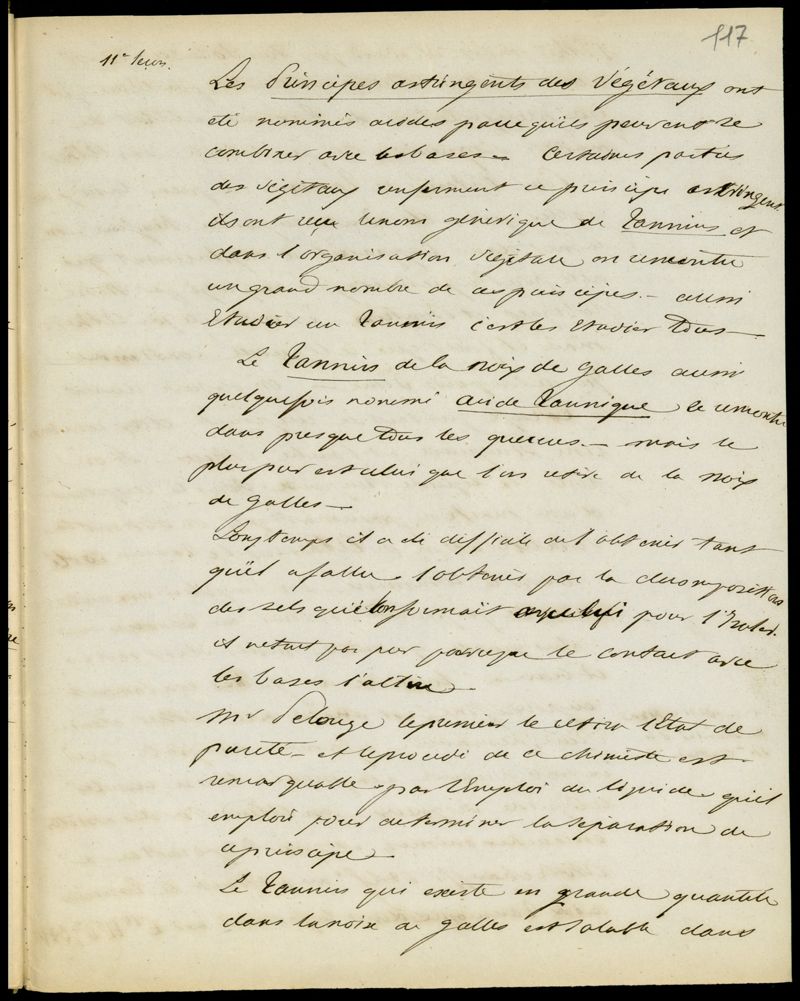 117
11e leçon.
Les Principes astringents des Végétaux ont
été nommés acides parcequ'ils peuvent se
combiner avec les bases – Certaines parties
des végétaux renferment ce principe astringent
ils ont reçu le nom générique de Tannins et
dans l'organisation végétale on rencontre
un grand nombre de ces principes – aussi
Etudier un Tannin c'est les Etudier Tous –
Le Tannin de la noix de galles aussi
quelquefois nommé acide Tannique se rencontre
dans presque Tous les quercus – mais le
plus pur est celui que l'on retire de la noix
de galles –
Longtemps il a été difficile de l'obtenir tant
qu'il a fallu l'obtenir par la décomposition
des sels qu'on formait avec lui pour l'Isoler.
il n'était pas pur parceque le contact avec
les bases l'altère –
Mr Pelouze le premier le retira à l'Etat de
pureté – et le procédé de ce chimiste est
remarquable par l'Emploi du liquide qu'il
emploie pour déterminer la séparation de
ce principe –
Le Tannin qui existe en grande quantité
dans la noix de galles est soluble dans